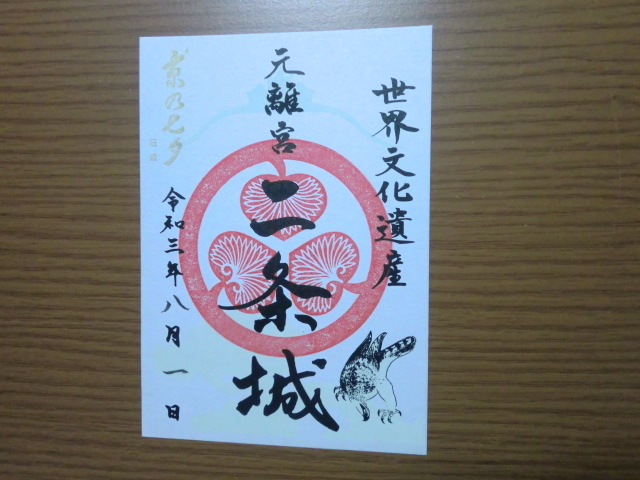 世界文化遺産
元離宮
二条城
京の七夕
令和三年八月一日